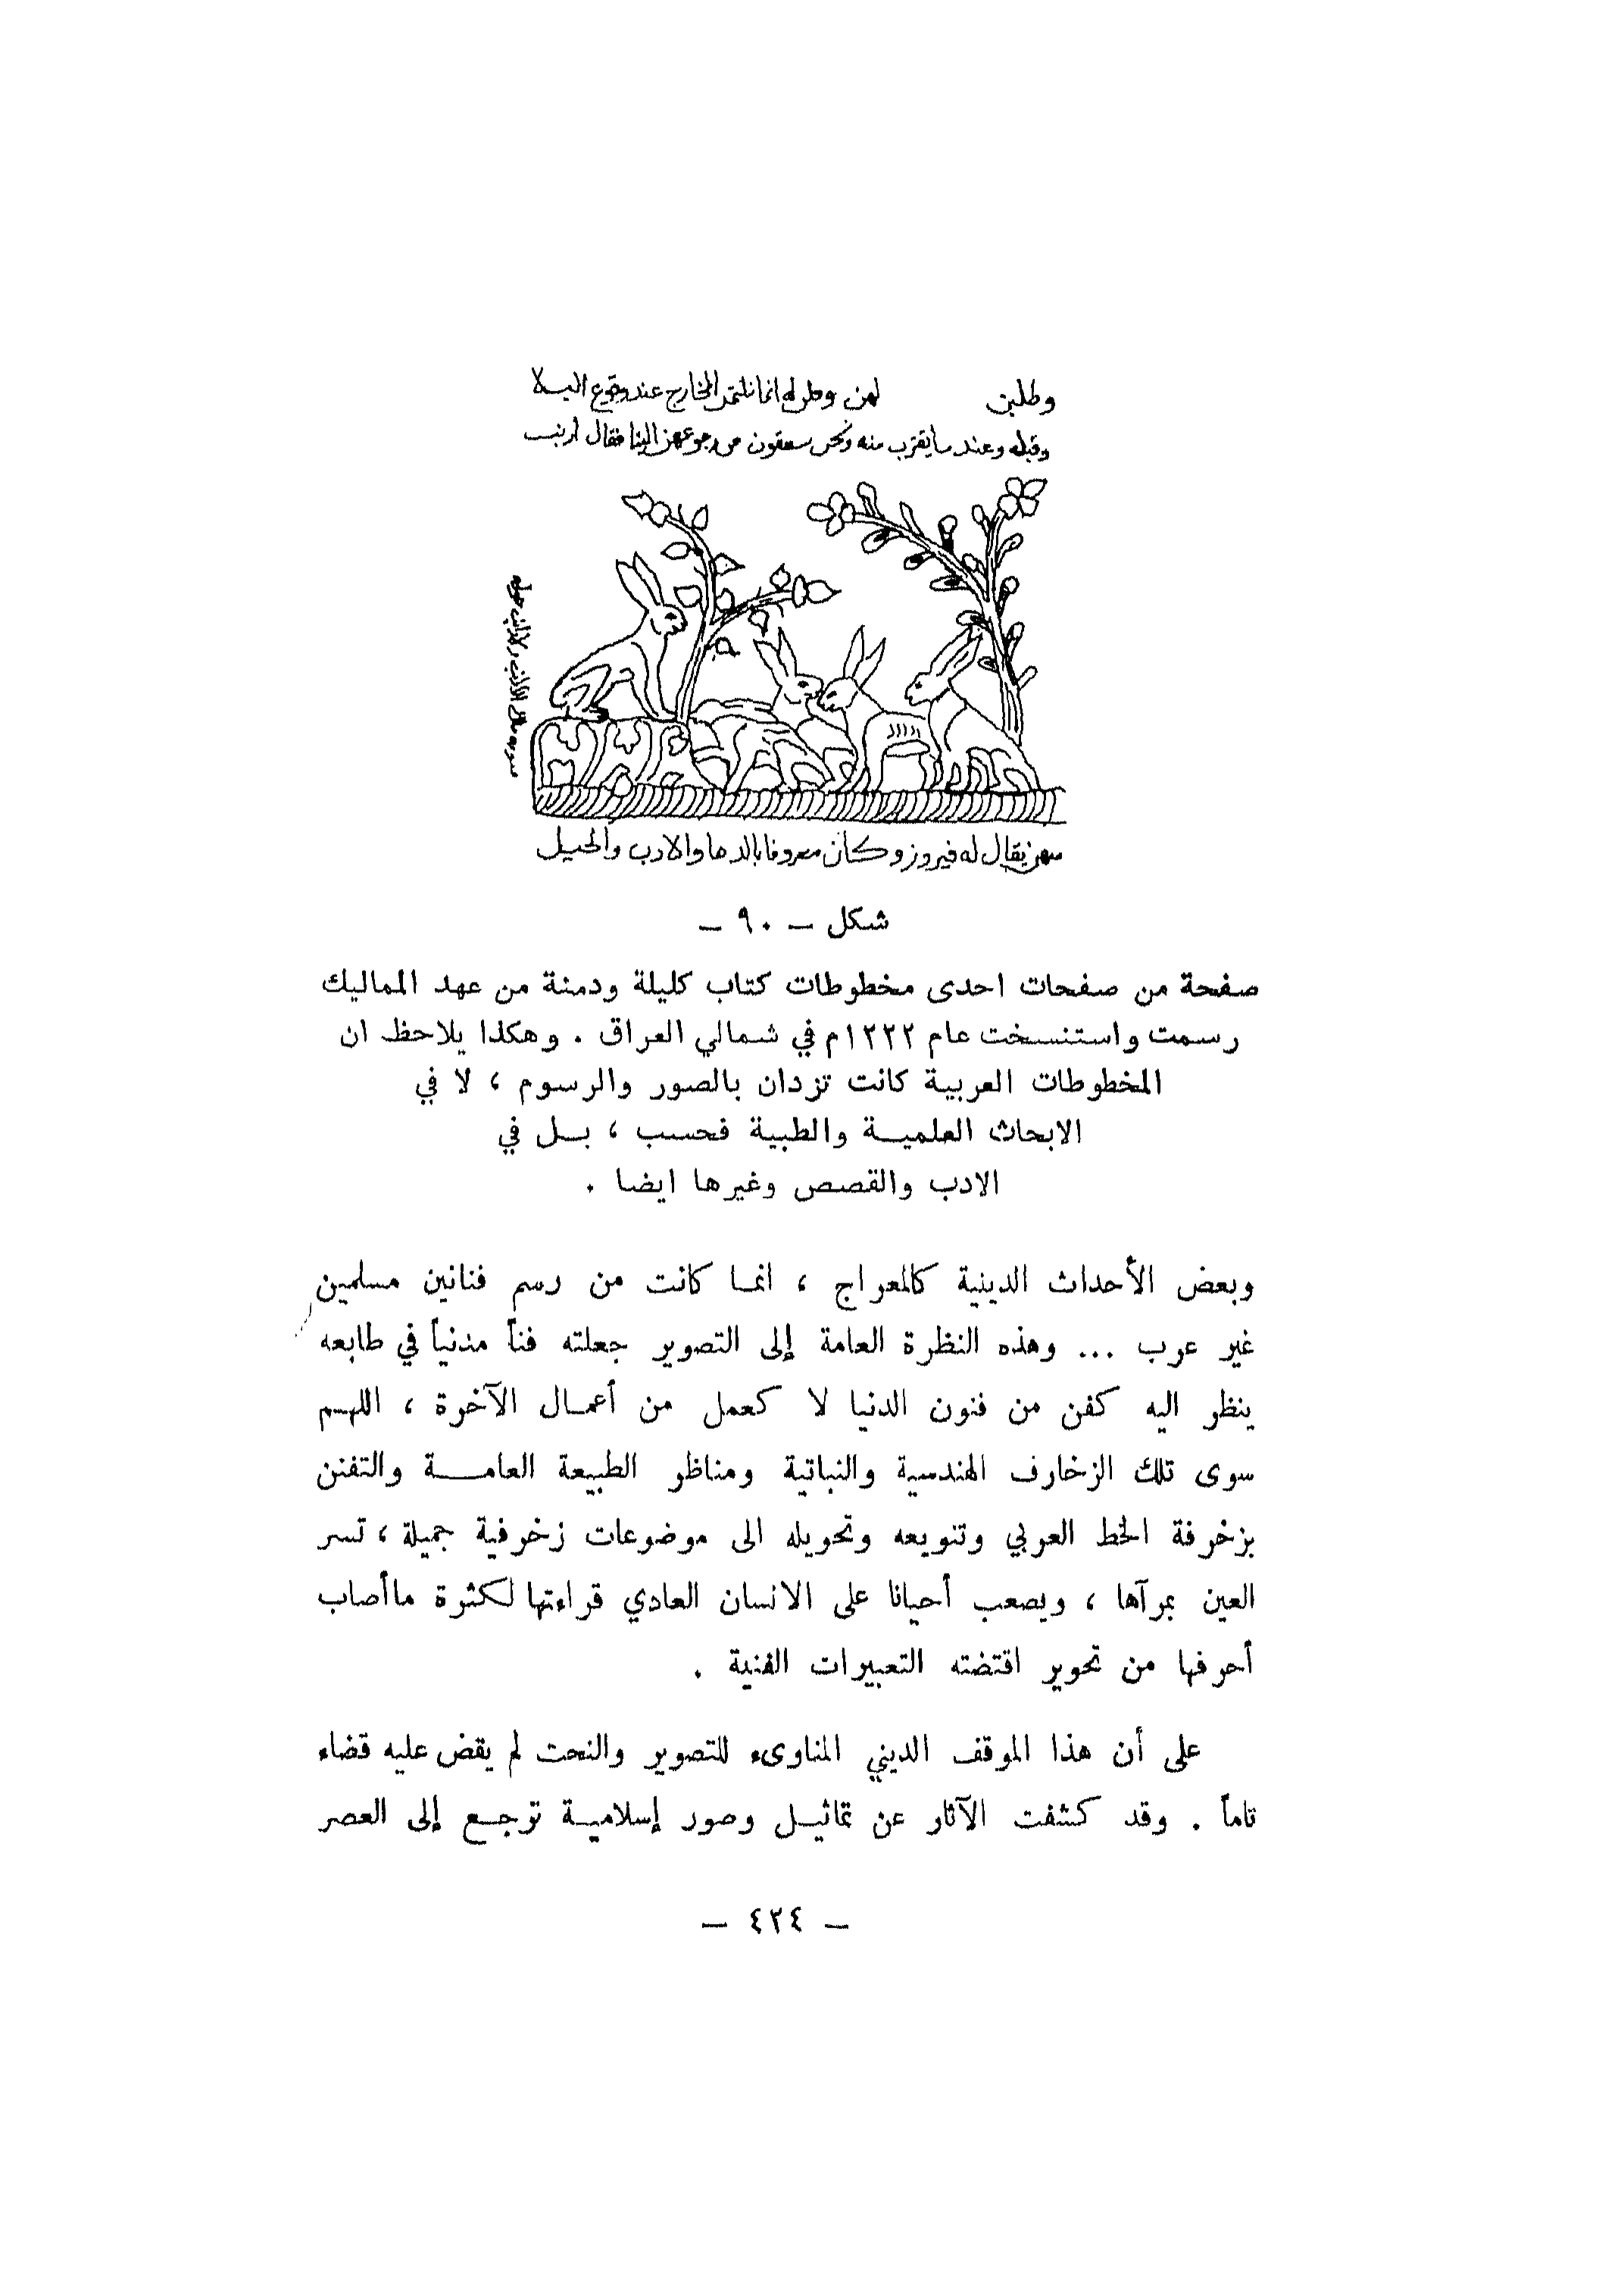 وطلبن لهن وقلن له انما نلتمس المخارج عند وقوع البلا
وقبله وعند ما يقترب منه ونحن من رجوعهن الينا فقال ارنب
صورة ملك الارانب والارانب حوله
منهن يقال له فيروز وكان معروفا بالدها والادب والحيل
شكل — ٩٠ —
صفحة من صفحات احدى مخطوطات كتاب كليلة ودمنة من عهد المماليك
رسمت واستنسخت عام ١٢٢٢م في شمالي العراق . وهكذا يلاحظ ان
المخطوطات العربية كانت تزدان بالصور والرسوم ، لا في
الابحاث العلمية والطبية فحسب ، بل في
الادب والقصص وغيرها ايضا .
وبعض الأحداث الدينية كالمعراج ، انما كانت من رسم فنانين مسلمين
غير عرب ... وهذه النظرة العامة إلى التصوير جعلته فناً مدنياً في طابعه
ينظر اليه كفن من فنون الدنيا لا كعمل من أعمال الآخرة ، اللهم
سوى تلك الزخارف الهندسية والنباتية ومناظر الطبيعة العامة والتفنن
بزخرفة الخط العربي وتنويعه وتحويله الى موضوعات زخرفية جميلة ، تسر
العين بمرآها ، ويصعب أحيانا على الانسان العادي قراءتها لكثرة ماأصاب
أحرفها من تحوير اقتضته التعبيرات الفنية .
على أن هذا الموقف الديني المناوىء للتصوير والنحت لم يقض عليه قضاء
تاماً . وقد كشفت الآثار عن تماثيل وصور إسلامية ترجع إلى العصر
— ٤٢٤ —